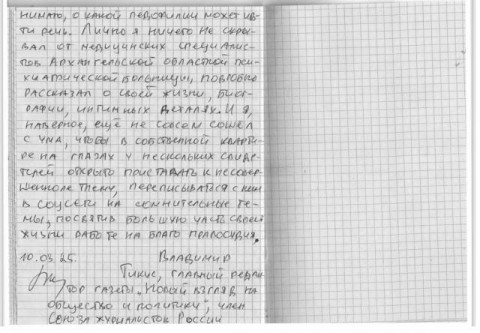 нимаю, о какой педофилии может ид-
ти речь. Лично я ничего не скры-
вал от медицинских специалис-
тов Архангельской областной пси-
хиатрической больницы, подробно
рассказал о своей жизни, биог-
рафии, интимных деталях. И я,
наверное, ещё не совсем сошёл
с ума, чтобы в собственной кварти-
ре на глазах у нескольких свиде-
телей открыто приставать к несовер-
шеннолетнему, переписываться с ним
в соцсети на сомнительные те-
мы, посвятив большую часть своей
жизни работе на благо правосудия.
10.03.25. Владимир
Тикус, главный редак-
тор газеты "Новый взгляд на
общество и политику", член
Союза журналистов России